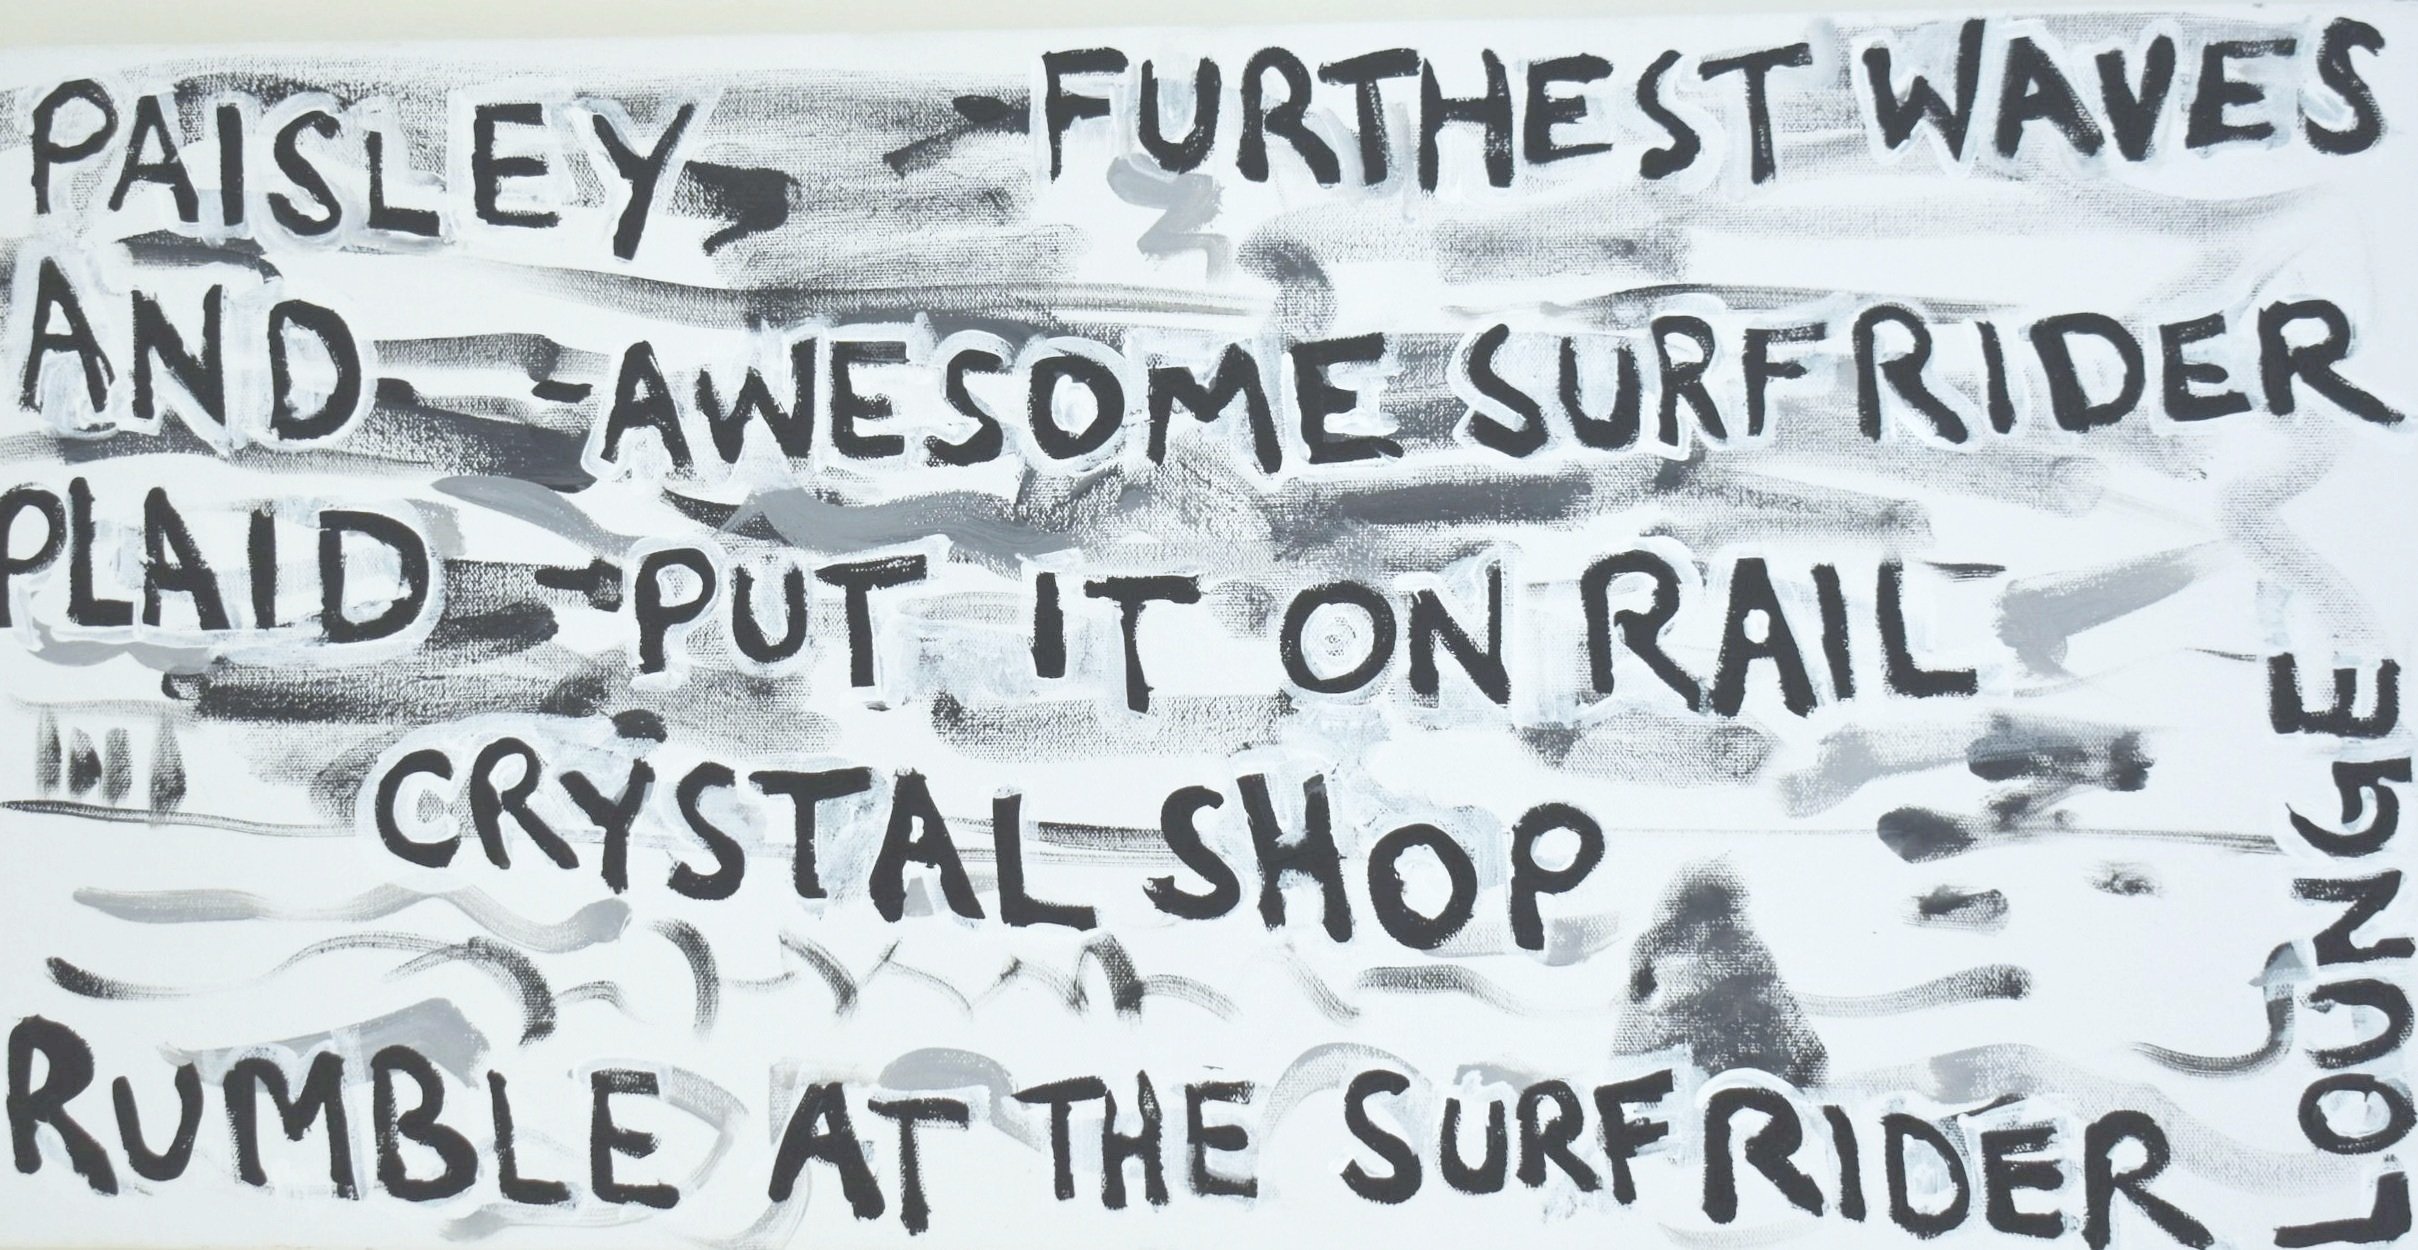 PAISLEY -FURTHEST WAVES
AND -AWESOME SURFRIDER
PLAID -PUT IT ON RAIL
CRYSTAL SHOP
RUMBLE AT THE SURFRIDER
LOUNGE